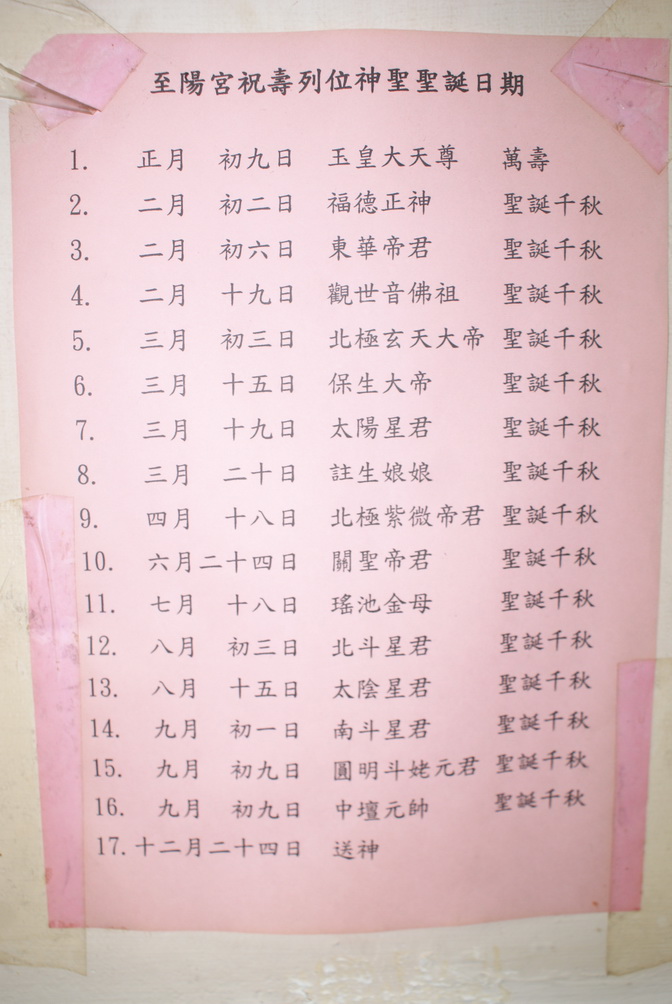 至陽宮祝壽列位神聖聖誕日期
1. 正月 初九日 玉皇大天尊 萬壽
2. 二月 初二日 福德正神 聖誕千秋
3. 二月 初六日 東華帝君 聖誕千秋
4. 二月 十九日 觀世音佛祖 聖誕千秋
5. 三月 初三日 北極玄天大帝 聖誕千秋
6. 三月 十五日 保生大帝 聖誕千秋
7. 三月 十九日 太陽星君 聖誕千秋
8. 三月 二十日 註生娘娘 聖誕千秋
9. 四月 十八日 北極紫微帝君 聖誕千秋
10. 六月二十四日 關聖帝君 聖誕千秋
11. 七月 十八日 瑤池金母 聖誕千秋
12. 八月 初三日 北斗星君 聖誕千秋
13. 八月 十五日 太陰星君 聖誕千秋
14. 九月 初一日 南斗星君 聖誕千秋
15. 九月 初九日 圓明斗姥元君 聖誕千秋
16. 九月 初九日 中壇元帥 聖誕千秋
17. 十二月二十四日 送神